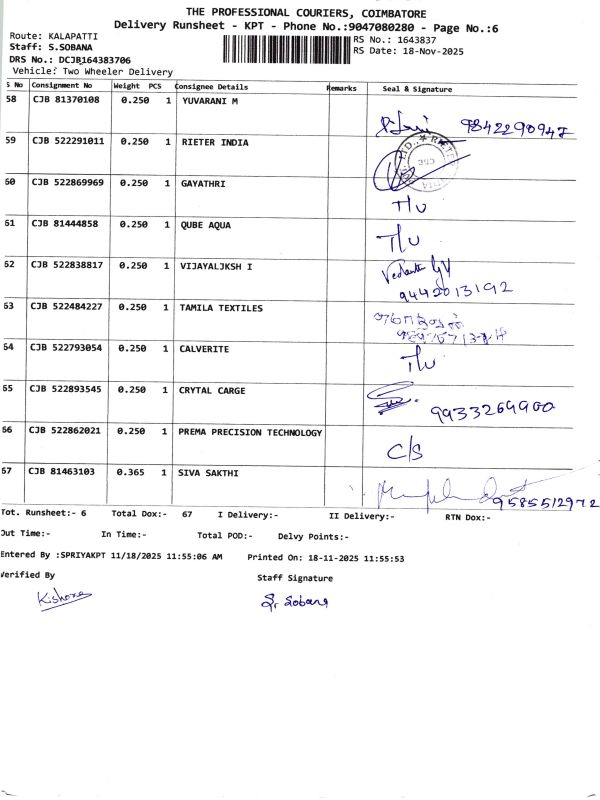 THE PROFESSIONAL COURIERS, COIMBATORE
Delivery Runsheet - KPT - Phone No.:9047080280 - Page No.:6
Route: KALAPATTI
RS No.: 1643837
Staff: S.SOBANA
RS Date: 18-Nov-2025
DRS No.: DCJB164383706
Vehicle: Two Wheeler Delivery
S No Consignment No Weight PCS Consignee Details Remarks Seal & Signature
58 CJB 81370108 0.250 1 YUVARANI M
9842290947
59 CJB 522291011 0.250 1 RIETER INDIA
60 CJB 522869969 0.250 1 GAYATHRI
T/U
61 CJB 81444858 0.250 1 QUBE AQUA
T/U
62 CJB 522838817 0.250 1 VIJAYALJKSH I
9442013192
63 CJB 522484227 0.250 1 TAMILA TEXTILES
64 CJB 522793054 0.250 1 CALVERITE
T/U
65 CJB 522893545 0.250 1 CRYTAL CARGE
9933269900
66 CJB 522862021 0.250 1 PREMA PRECISION TECHNOLOGY
C/S
67 CJB 81463103 0.365 1 SIVA SAKTHI
9585512972
Tot. Runsheet:- 6 Total Dox:- 67 I Delivery:- II Delivery:- RTN Dox:-
Out Time:- In Time:- Total POD:- Delvy Points:-
Entered By :SPRIYAKPT 11/18/2025 11:55:06 AM Printed On: 18-11-2025 11:55:53
Verified By Staff Signature
Kishore S. Sobana